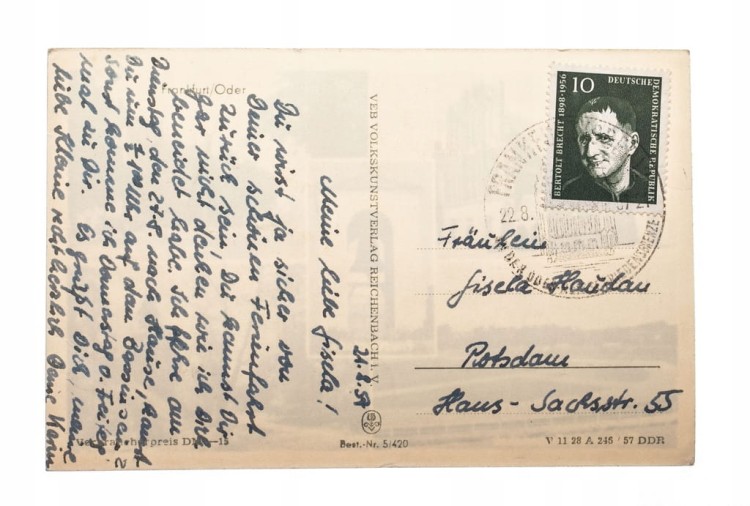 Frankfurt/Oder
21.8.57
Meine liebe Gisela!
Du wirst ja sicher von
Deiner schönen Ferienfahrt
zurück sein, Du kannst Dir
gar nicht denken wie ich Dich
beneidet habe. Ich fahre am
Dienstag, den 27.8 nach Hause, kannst
Du um 7 Uhr auf den
Sonst komme ich Donnerstag o. Freitag
mal zu Dir. Es grüßt Dich, meine
liebe Kleine recht herzlich Deine
VEB VOLKSKUNSTVERLAG REICHENBACH i. V.
10
DEUTSCHE
DEMOKRATISCHE REPUBLIK
BERTOLT BRECHT 1898-1956
22.8.
Fräulein
Gisela
Potsdam
Hans-Sachsstr. 55
Verbraucherpreis DM -,15
Best.-Nr. 5/420
V 11 28 A 245/57 DDR